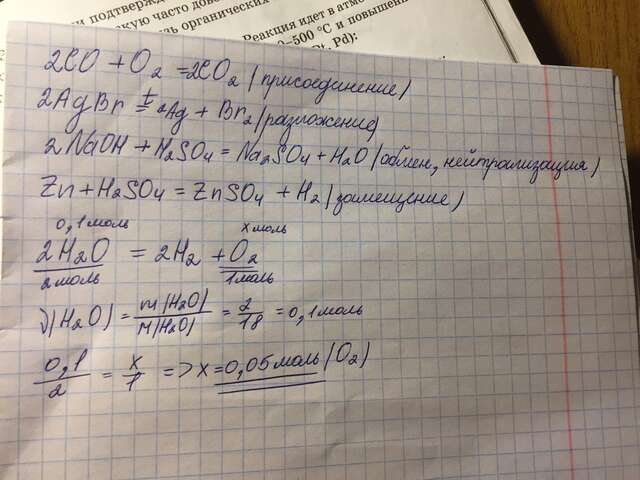 и подтвержд
скую часто дово
органических
Реакция идет в атмо
–500 °С и повышенн
Pt, Pd):
2CO + O2 = 2CO2 (присоединение)
2AgBr t= 2Ag + Br2 (разложение)
2NaOH + H2SO4 = Na2SO4 + H2O (обмен, нейтрализация)
Zn + H2SO4 = ZnSO4 + H2 (замещение)
0,1 моль x моль
2H2O = 2H2 + O2
2 моль 1 моль
ν(H2O) = m(H2O)/M(H2O) = 2/18 = 0,1 моль
0,1/2 = x/1 => x = 0,05 моль (O2)